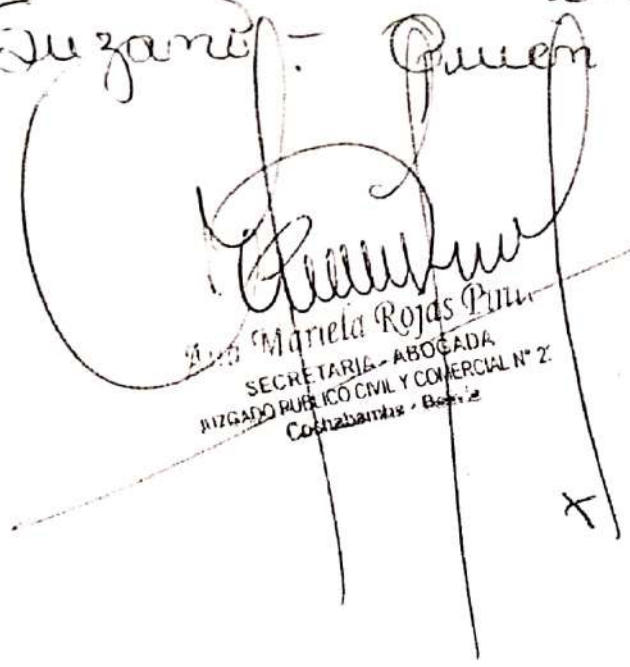 Suzani.- Quien
Mariela Rojas
SECRETARIA - ABOGADA
JUZGADO PUBLICO CIVIL Y COMERCIAL N° 2
Cochabamba -